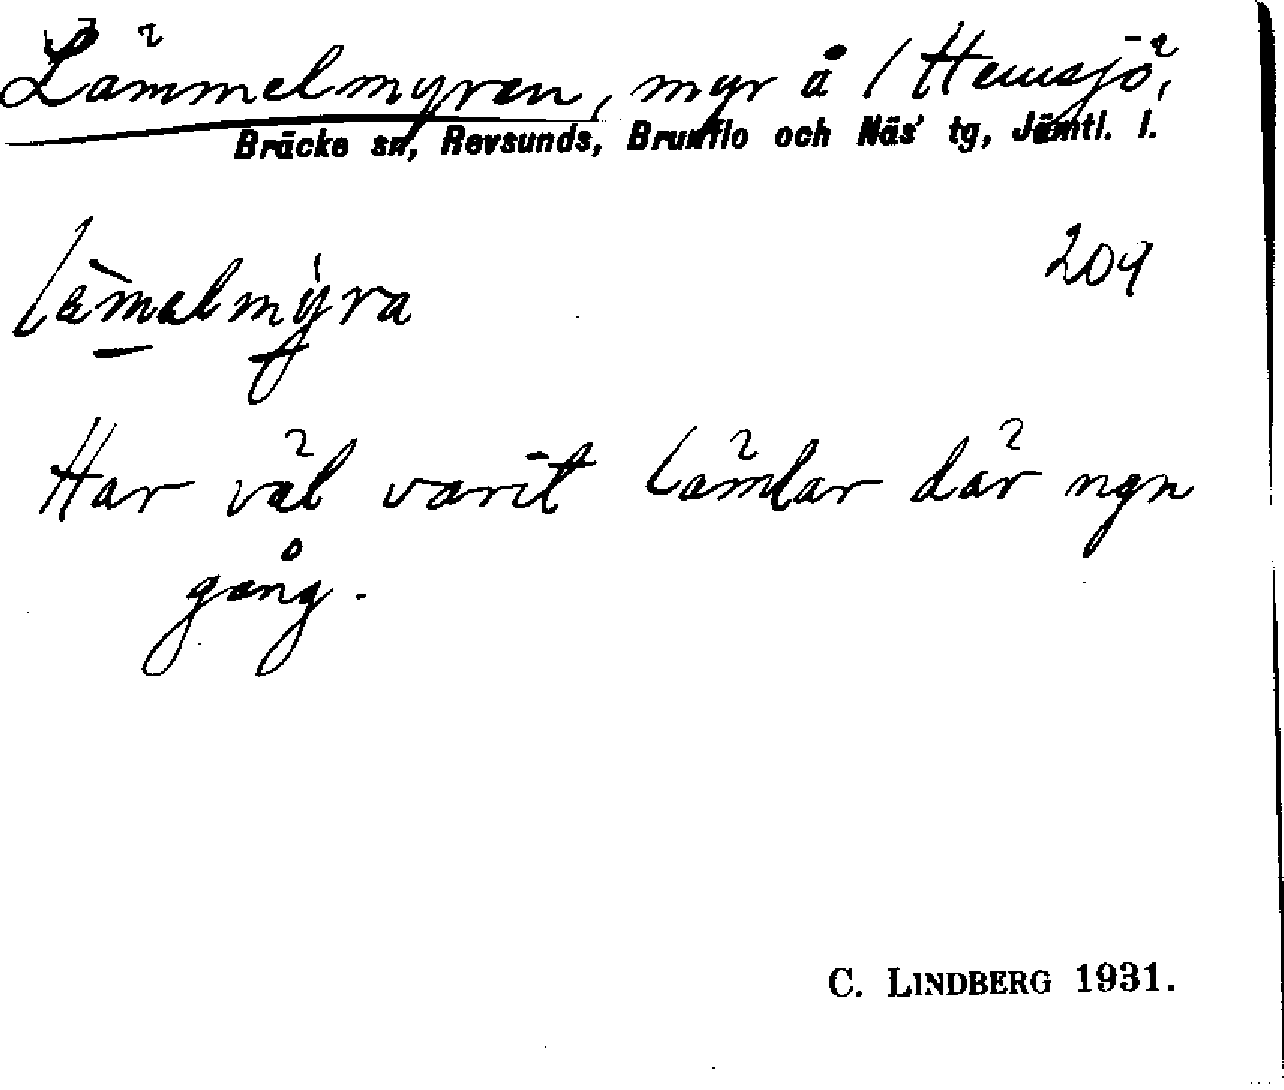 Lämmelmyran, myr å / Hemsjö,
Bräcke sn, Revsunds, Brunflo och Näs' tg, Jämtl. l.
209
lämalmyra
Har väl varit lämlar där ngn
gång.
C. LINDBERG 1931.